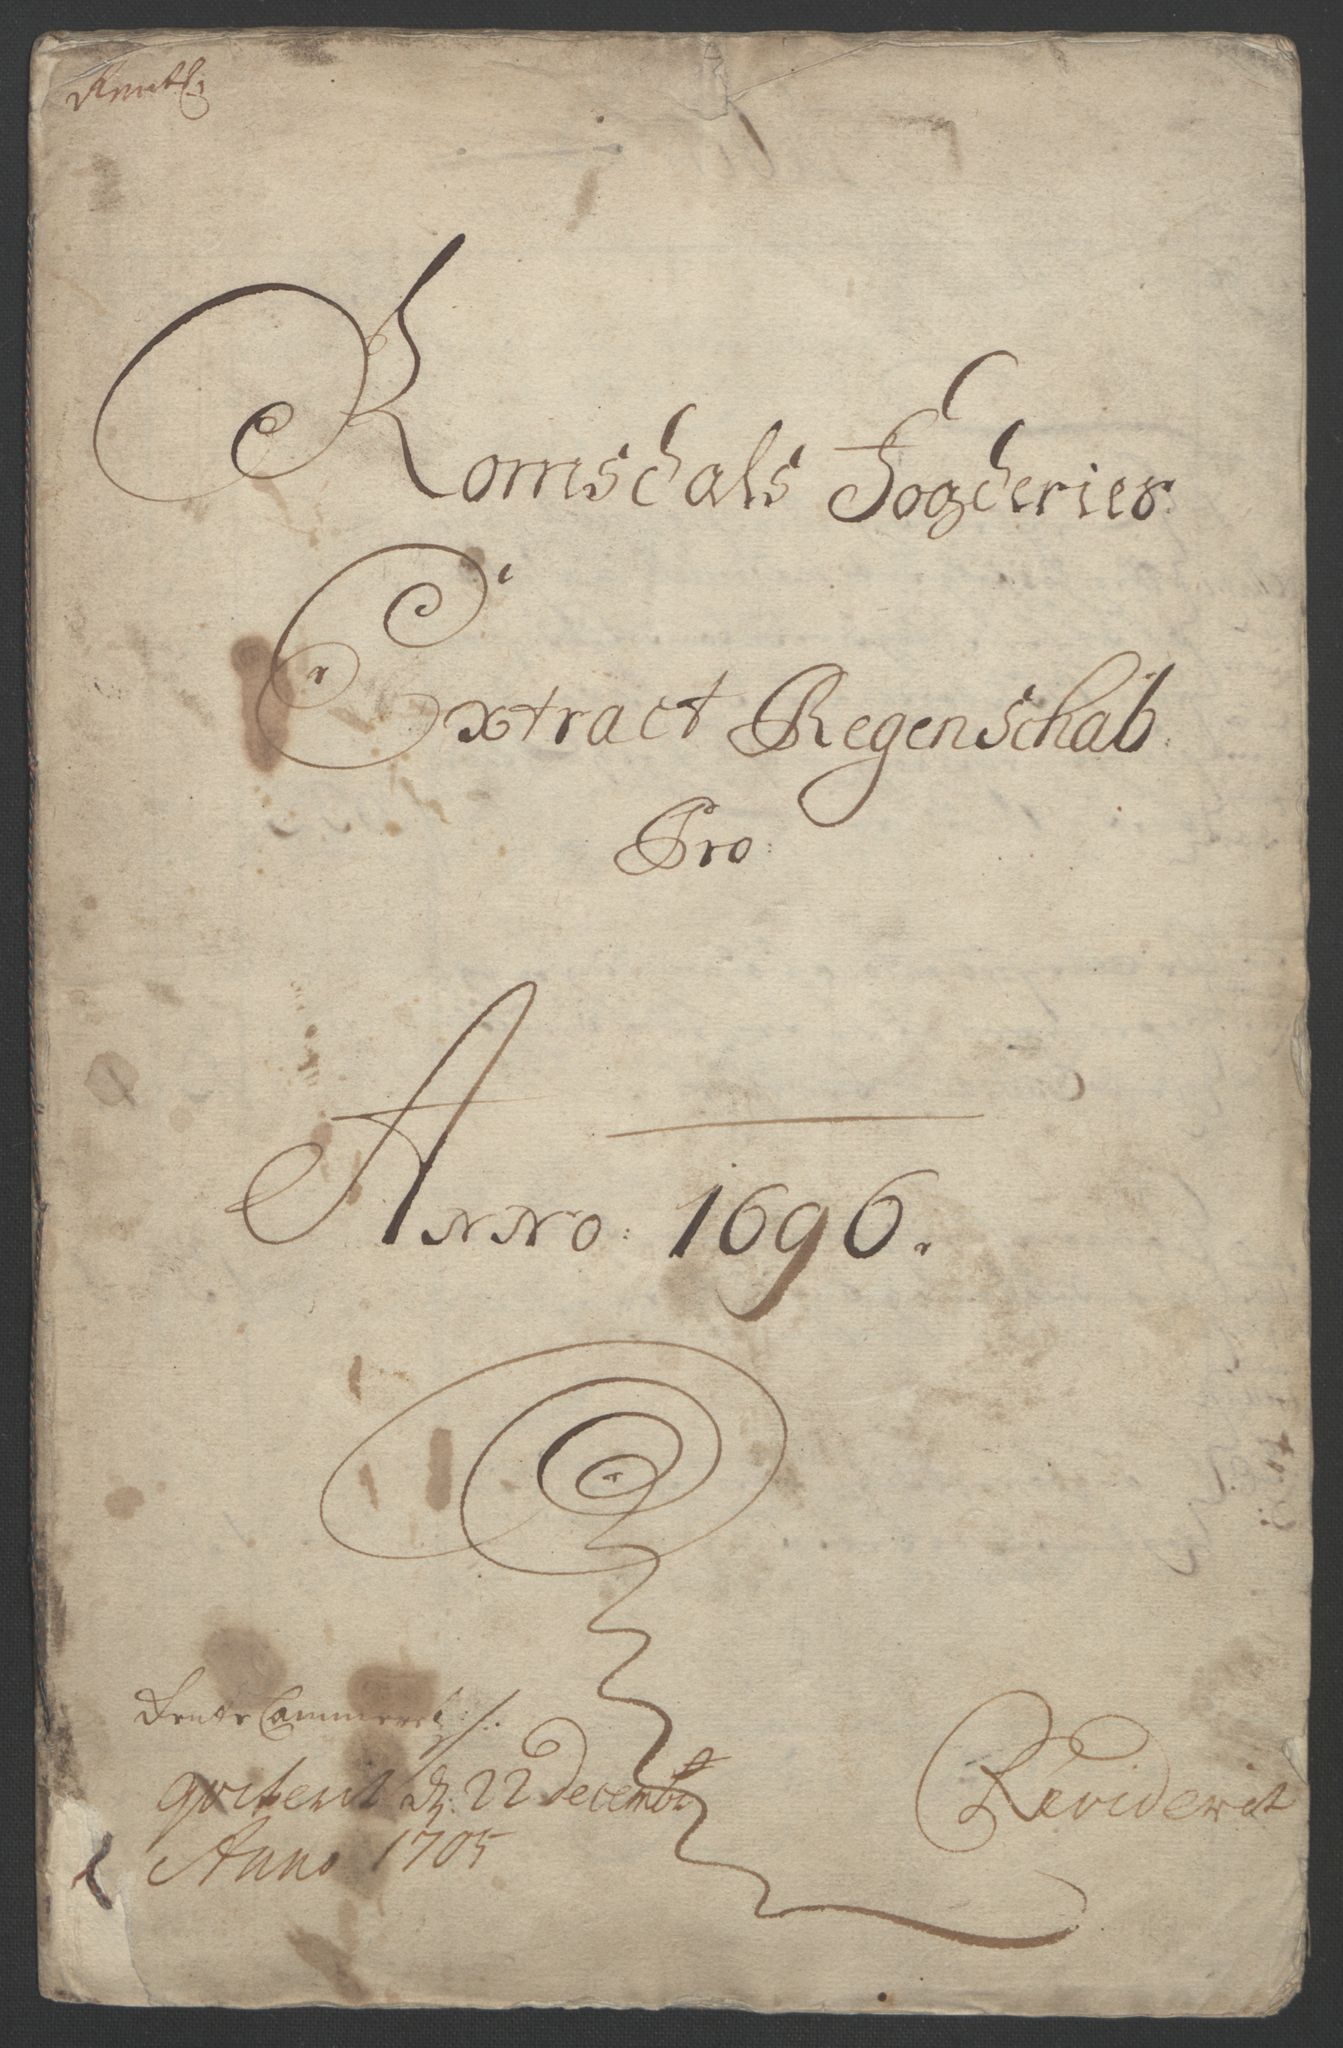 Romsdals Fogderies
Extract Regenschab
Pro
Anno 1696.
Rente Cammeret
qviterit d. 22 Decembr
Anno 1705
Reviderit